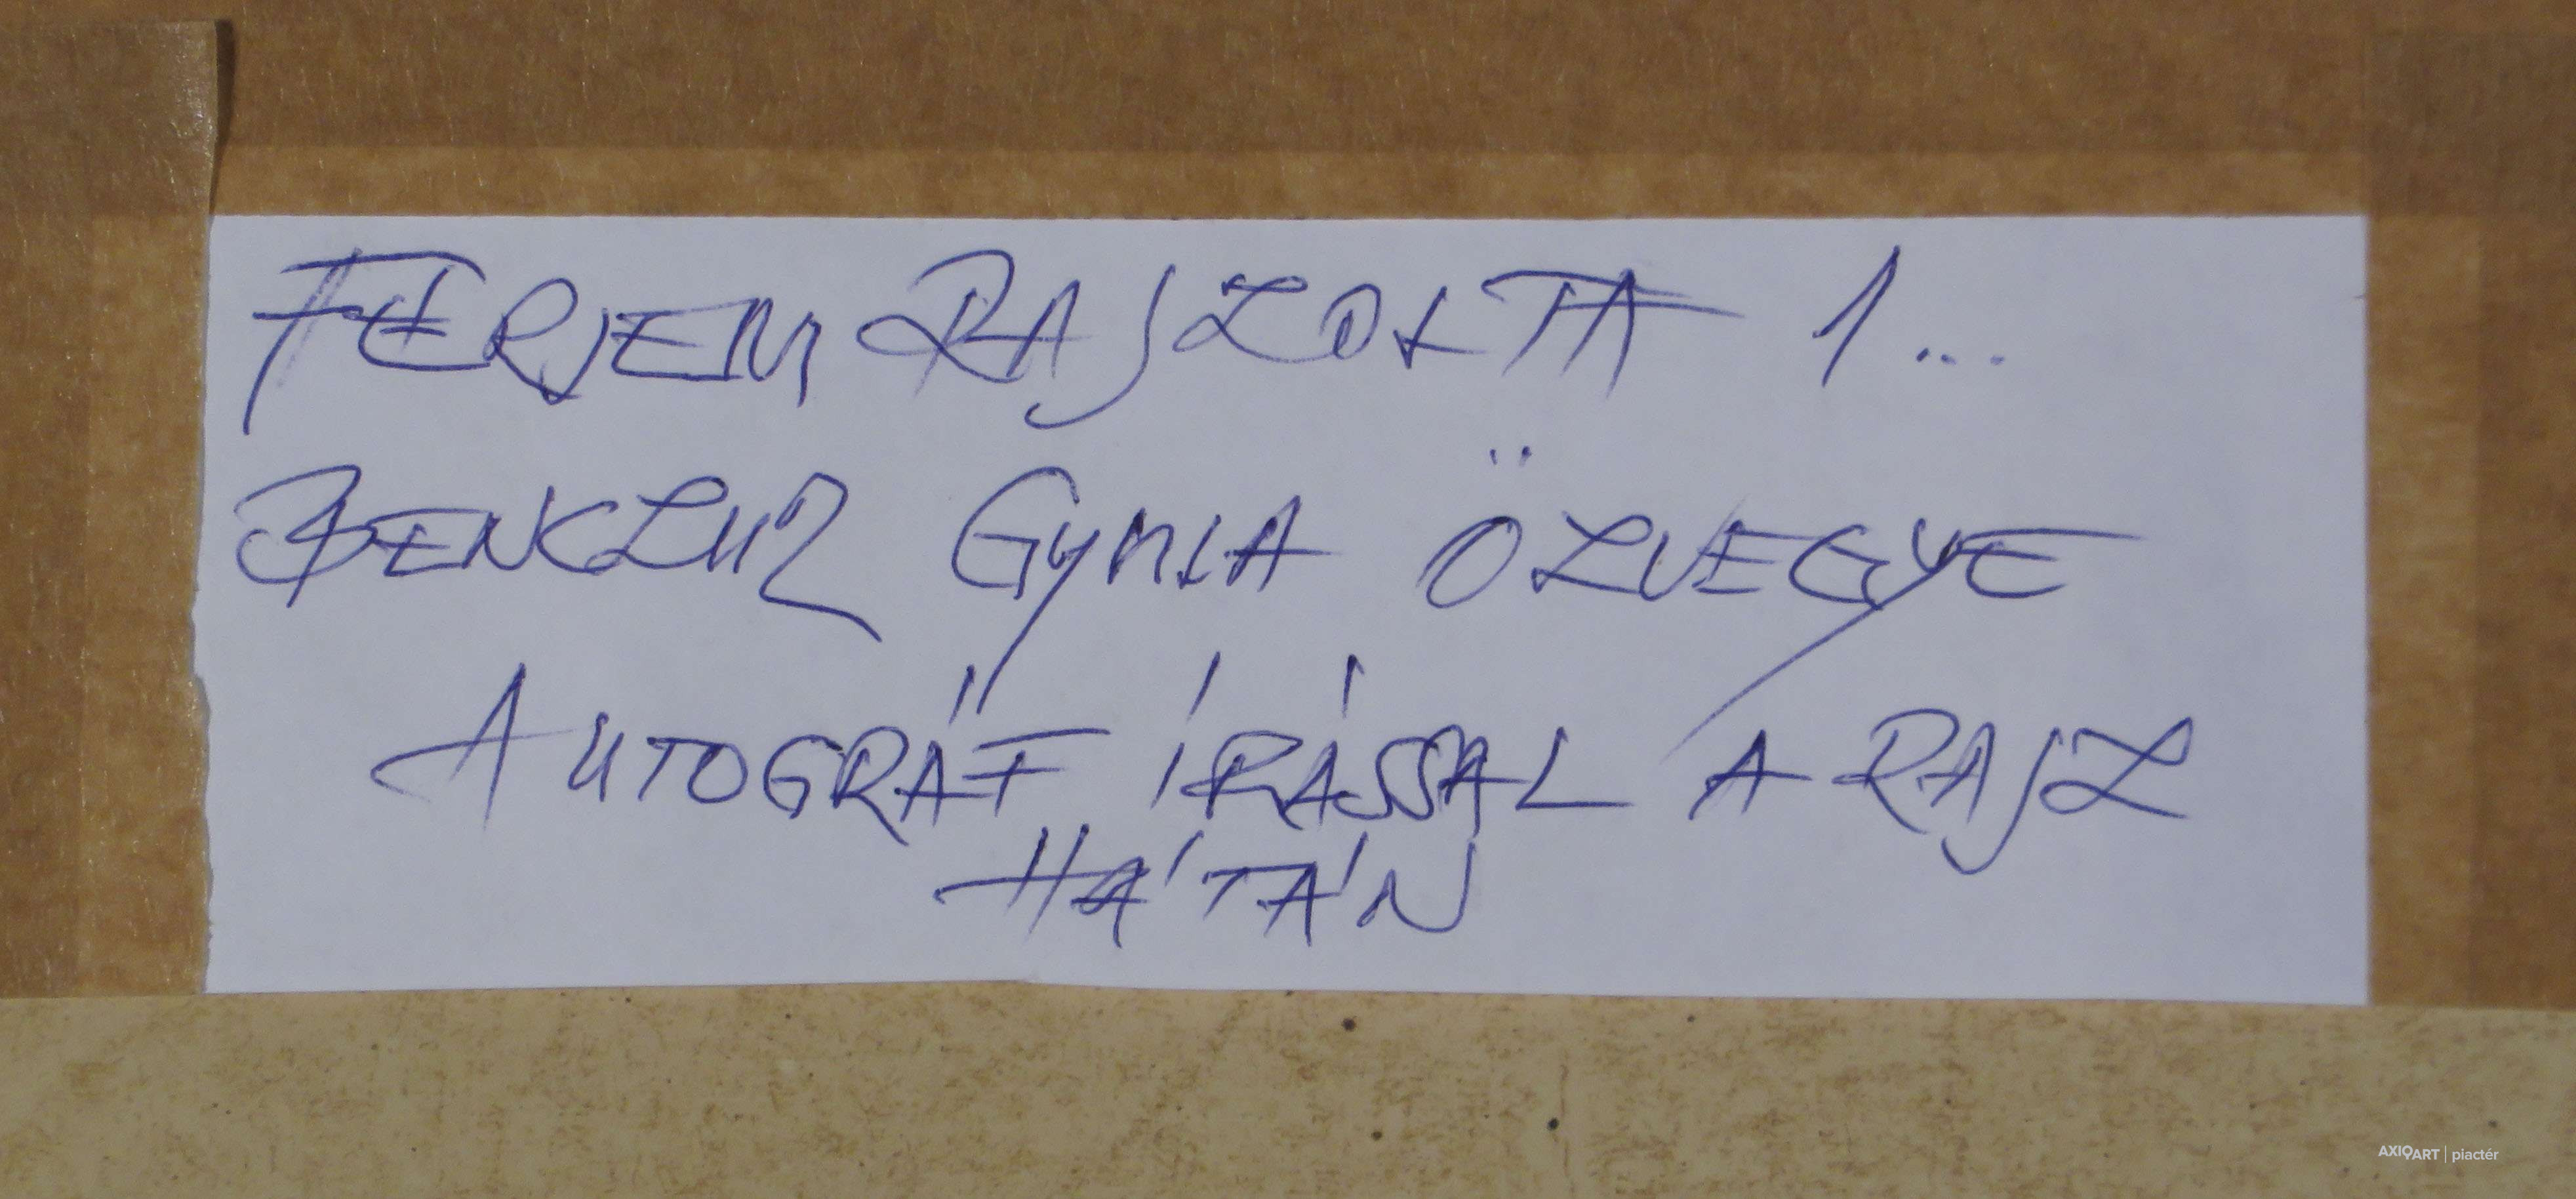 FÉRJEM RAJZOLTA 1...
BENCZUR GYULA ÖZVEGYE
AUTOGRÁF ÍRÁSSAL A RAJZ
HÁTÁN
AXIOART | piactér